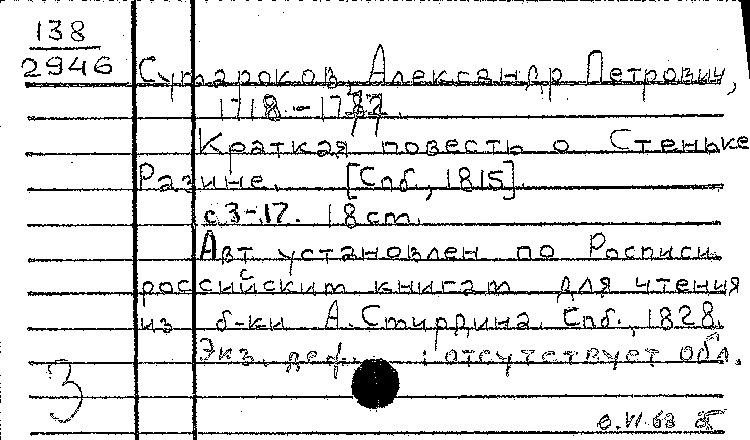 138
2946
Сумароков, Александр Петрович,
1718 - 1777.
Краткая повесть о Стеньке
Разине. [Спб., 1815].
с. 3-17. 18 cm.
Авт установлен по Росписи
российским книгам для чтения
из б-ки А. Смирдина. Спб., 1828.
Экз. деф. : отсутствует обл.
3